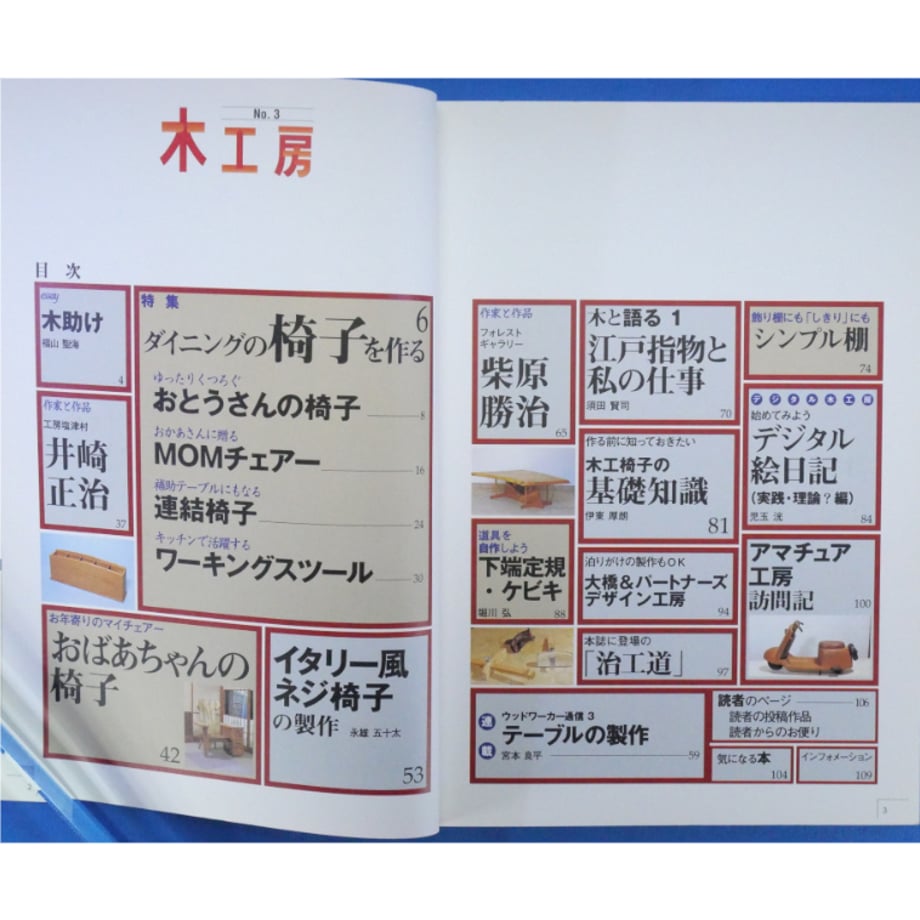 No. 3
木工房
目 次
essay
木助け
福山 聖海
4
作家と作品
工房塩津村
井崎
正治
37
特 集
6
ダイニングの椅子を作る
ゆったりくつろぐ
おとうさんの椅子
8
おかあさんに贈る
MOMチェアー
16
補助テーブルにもなる
連結椅子
24
キッチンで活躍する
ワーキングスツール
30
お年寄りのマイチェアー
おばあちゃんの
椅子
42
イタリー風
ネジ椅子
の製作 永雄 五十太
53
2
作家と作品
フォレスト
ギャラリー
柴原
勝治
65
木と語る 1
江戸指物と
私の仕事
須田 賢司
70
飾り棚にも「しきり」にも
シンプル棚
74
作る前に知っておきたい
木工椅子の
基礎知識
伊東 厚朗
81
デジタル木工房
始めてみよう
デジタル
絵日記
(実践・理論?編)
児玉 洸
84
道具を
自作しよう
下端定規
・ケビキ
堀川 弘
88
泊りがけの製作もOK
大橋&パートナーズ
デザイン工房
94
本誌に登場の
「治工道」
97
アマチュア
工房
訪問記
100
連載
ウッドワーカー通信 3
テーブルの製作
宮本 良平
59
読者のページ
106
読者の投稿作品
読者からのお便り
気になる本
104
インフォメーション
109
3